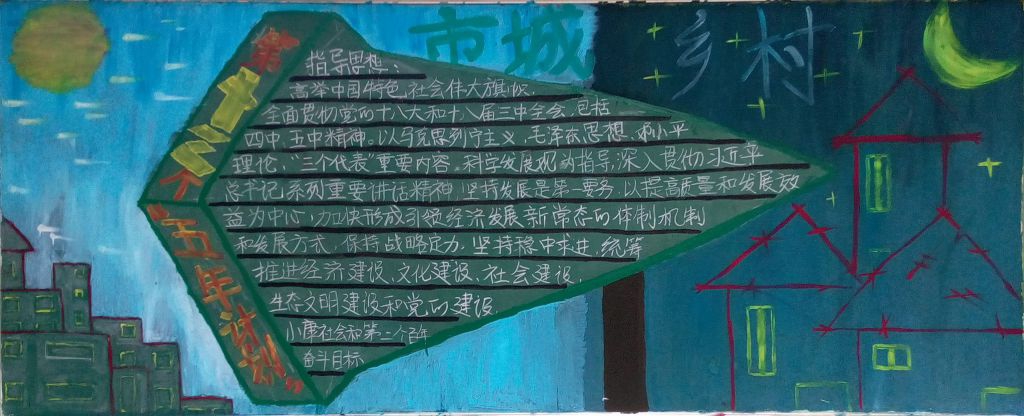 市城
乡村
第十三个
"五年计划"
指导思想:
高举中国特色、社会伟大旗帜
全面贯彻党的十八大和十八届三中全会,包括
四中、五中精神,以马克思列宁主义、毛泽东思想、邓小平
理论、"三个代表"重要内容、科学发展观为指导,深入贯彻习近平
总书记系列重要讲话精神,坚持发展是第一要务,以提高质量和发展效
益为中心,加快形成引领经济发展新常态的体制机制
和发展方式,保持战略定力,坚持稳中求进,统筹
推进经济建设、文化建设、社会建设、
生态文明建设和党的建设,
小康社会和第一个百年
奋斗目标